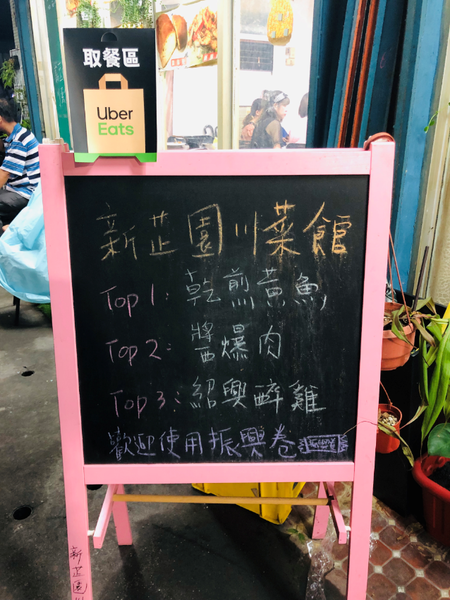 取餐區
Uber
Eats
新芷園川菜館
Top 1: 乾煎黃魚
Top 2: 醬爆肉
Top 3: 紹興醉雞
歡迎使用振興卷
新芷園川